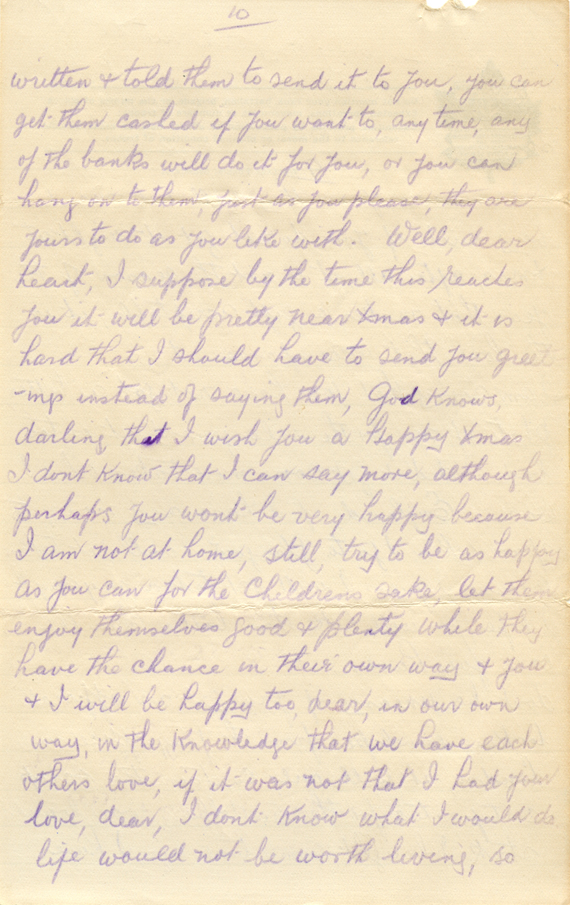 10
written & told them to send it to you, you can
get them cashed if you want to, any time, any
of the banks will do it for you, or you can
hang on to them, just as you please, they are
yours to do as you like with. Well, dear
heart, I suppose by the time this reaches
you it will be pretty near Xmas & it is
hard that I should have to send you greet
-ings instead of saying them, God knows,
darling that I wish you a Happy Xmas
I dont know that I can say more, although
perhaps you wont be very happy because
I am not at home, still, try to be as happy
as you can for the childrens sake, let them
enjoy themselves good & plenty while they
have the chance in their own way & you
& I will be happy too, dear, in our own
way, in the knowledge that we have each
others love, if it was not that I had your
love, dear, I dont know what I would do
life would not be worth living, so